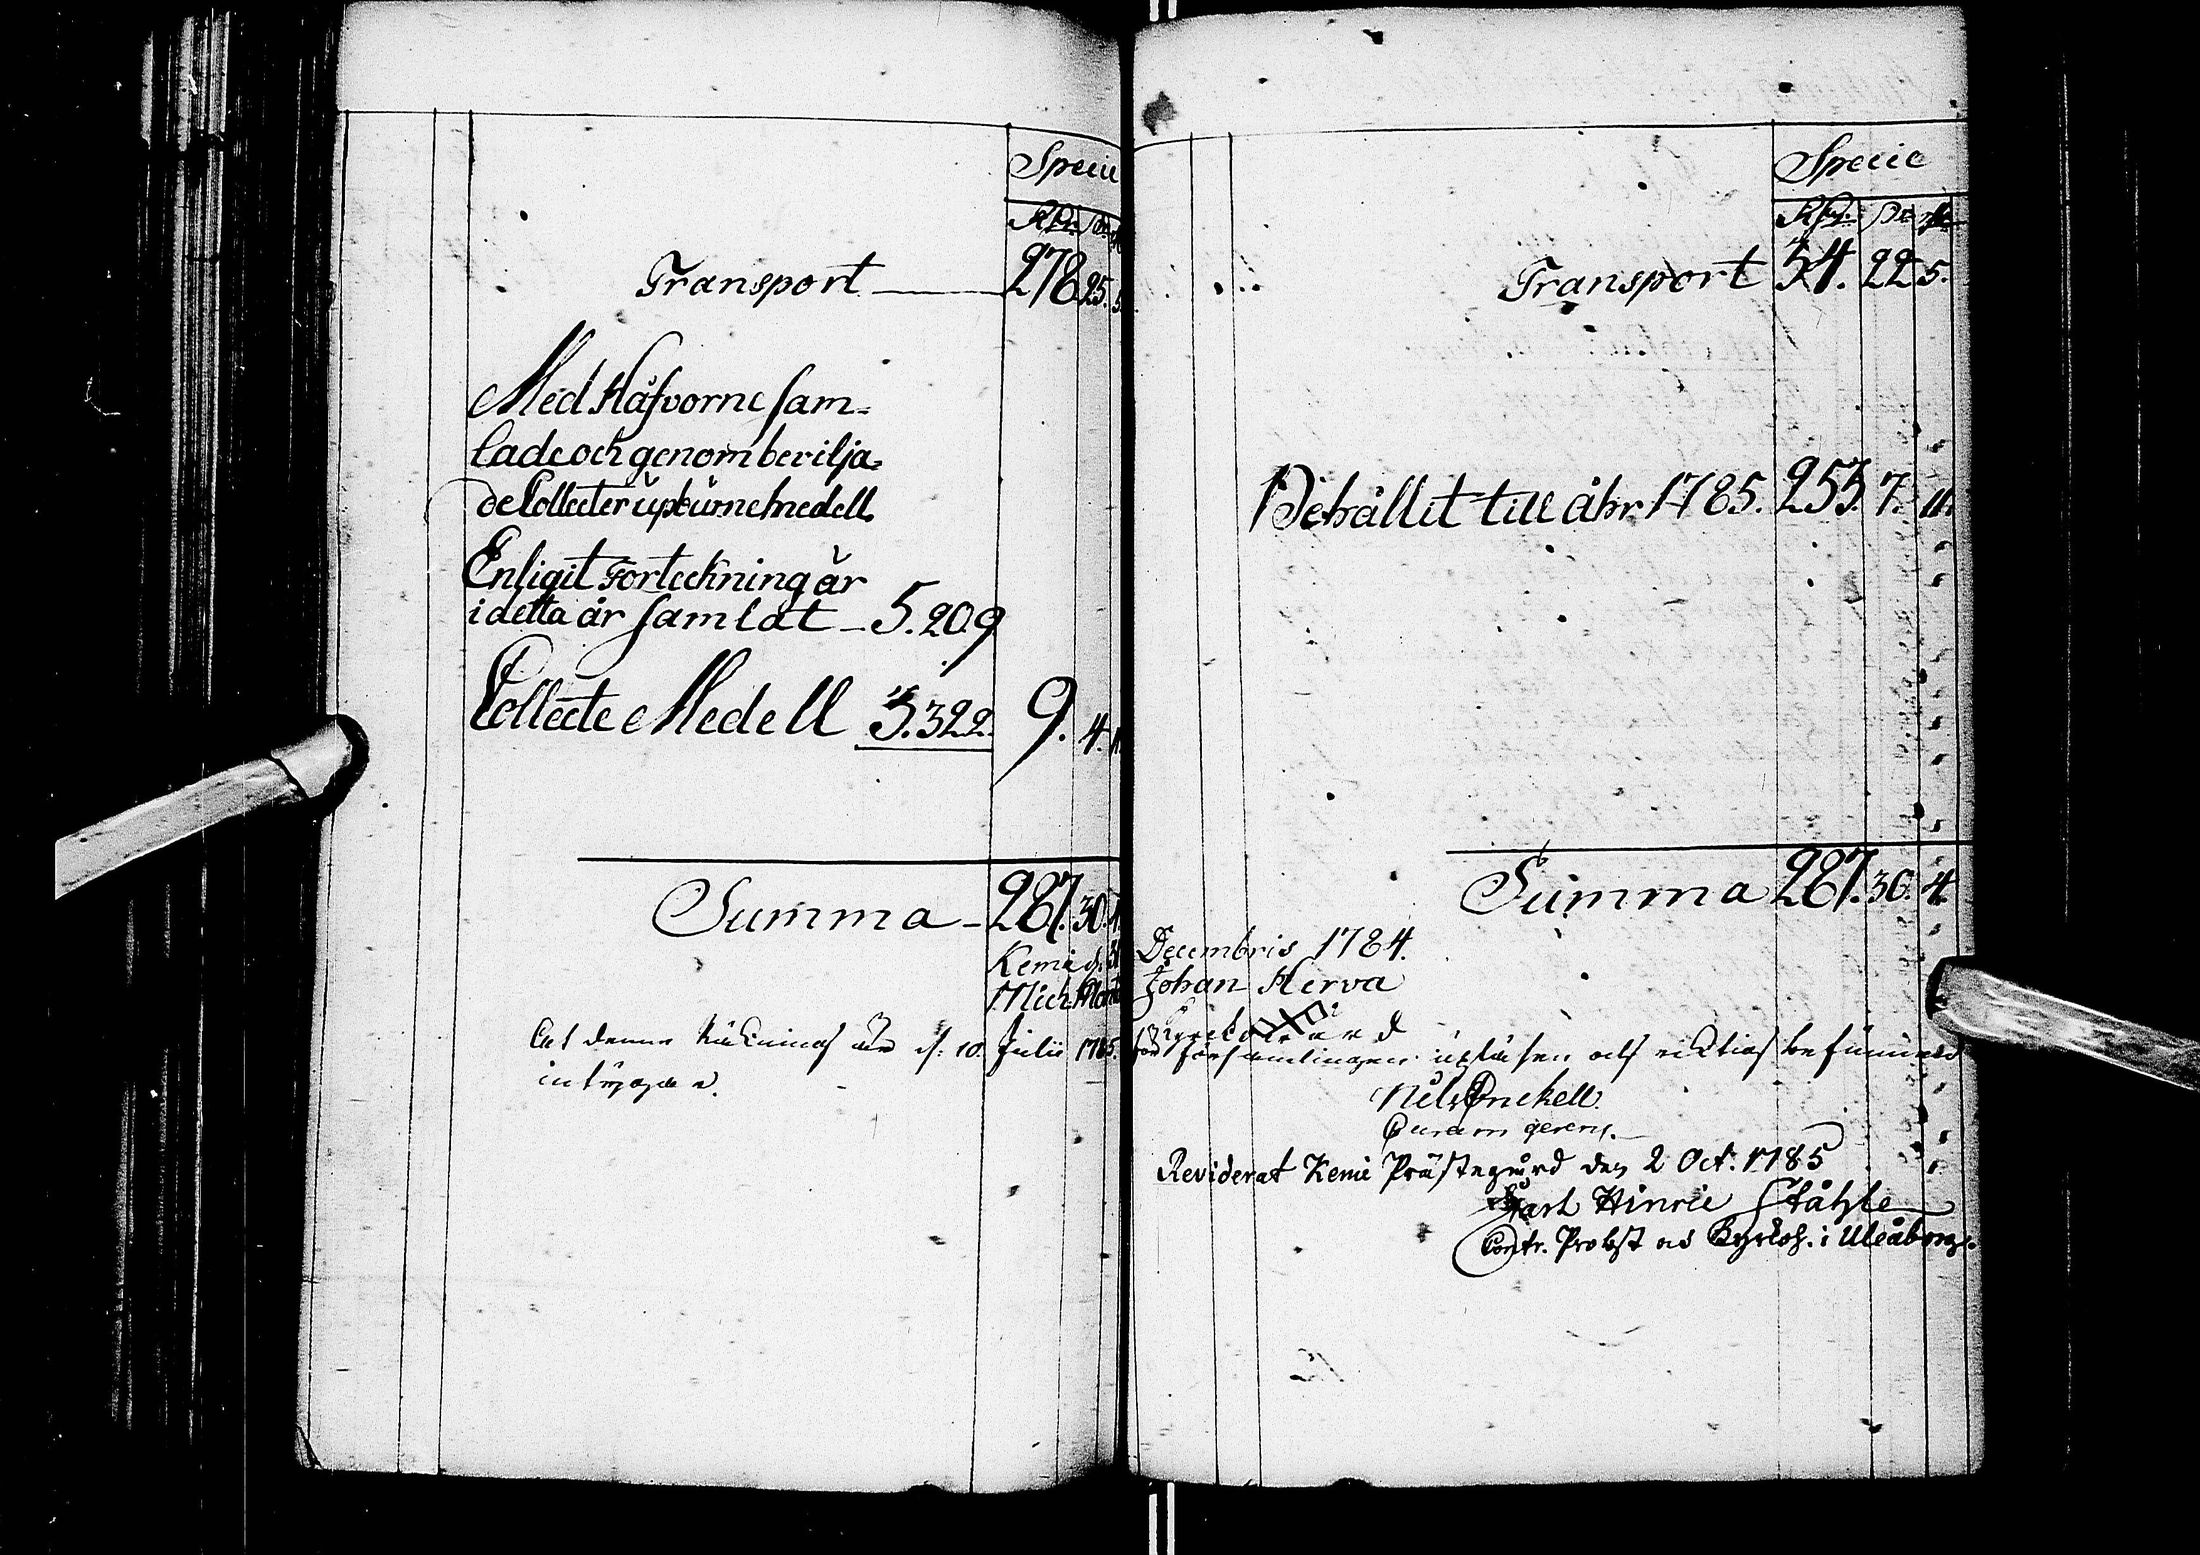 Specie
Rdr. Sk.
Transport 278 25. 5
Med Håfvorne sam=
lade och genom bevilja=
de Collecter upburne medell.
Enligit Forteckning är
i detta år samlat 5. 20. 9
Collecte Medell 3. 32. 2. 9. 4. 11
Summa 287. 30. 4
Kemi d. 31
Mich.
At denna Räkning är d. 10. Julii 1785.
intygar.
Specie
Rdr. Sk. rst.
Transport 34. 22 5.
Behållit till åhr 1785. 253. 7. 11.
Summa 287. 30. 4.
Decembris 1784.
Johan Herva
för Församlingen upläsen och riktig befunnen
Nils Snekell.
Curam gerens.
Reviderat Kemi Prästegård den 2 Oct. 1785
Carl Hinric Ståhle
Contr. Probst och Kyrkoh. i Uleåborg.